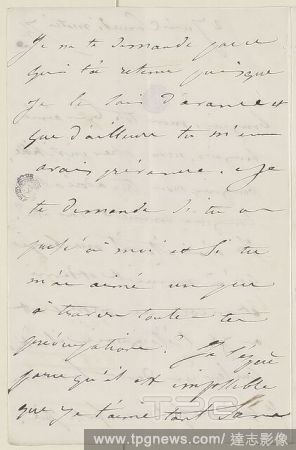 Je ne te demande pas ce
qui t'a retenu puisque
je le sais d'avance et
que d'ailleurs tu m'en
avais prévenue. Je
te demande si tu as
pensé à moi et si tu
m'as aimé un peu
à travers toutes tes
préoccupations?
parce qu'il est impossible
que je t'aime tant sans
TPG
www.tpgnews.com/達志影像